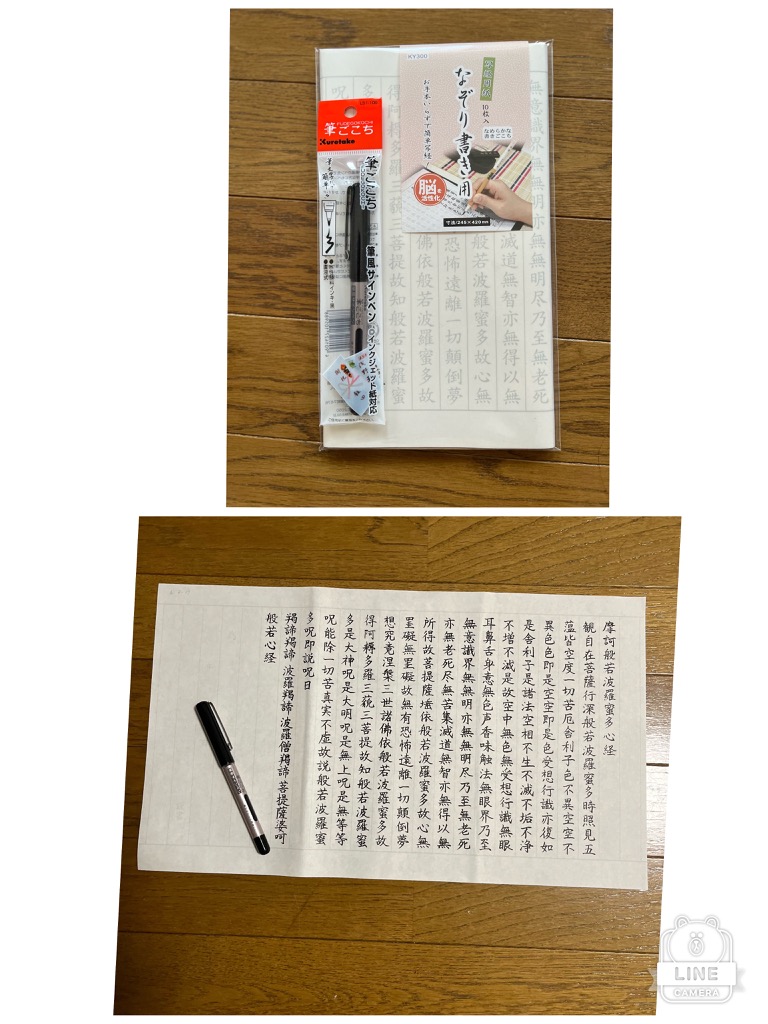 KY300
写経用紙
10枚入
なぞり書き用
お手本いらずで簡単写経!
なめらかな
書きごこち
脳を
活性化
寸法/245×420mm
FUDEGOKOCHI
筆ごこち
Kuretake
筆ごこち
筆風サインペン
インクジェット紙対応
無意識界無無明亦無無明尽乃至無老死
滅道無智亦無得以無
般若波羅蜜多故心無
恐怖遠離一切顛倒夢
佛依般若波羅蜜多故
菩提故知般若波羅蜜
摩訶般若波羅蜜多心経
観自在菩薩行深般若波羅蜜多時照見五
蘊皆空度一切苦厄舎利子色不異空空不
異色色即是空空即是色受想行識亦復如
是舎利子是諸法空相不生不滅不垢不浄
不増不減是故空中無色無受想行識無眼
耳鼻舌身意無色声香味触法無眼界乃至
無意識界無無明亦無無明尽乃至無老死
亦無老死尽無苦集滅道無智亦無得以無
所得故菩提薩埵依般若波羅蜜多故心無
罣礙無罣礙故無有恐怖遠離一切顛倒夢
想究竟涅槃三世諸佛依般若波羅蜜多故
得阿耨多羅三藐三菩提故知般若波羅蜜
多是大神呪是大明呪是無上呪是無等等
呪能除一切苦真実不虚故説般若波羅蜜
多呪即説呪曰
羯諦羯諦 波羅羯諦 波羅僧羯諦 菩提薩婆呵
般若心経
LINE
CAMERA